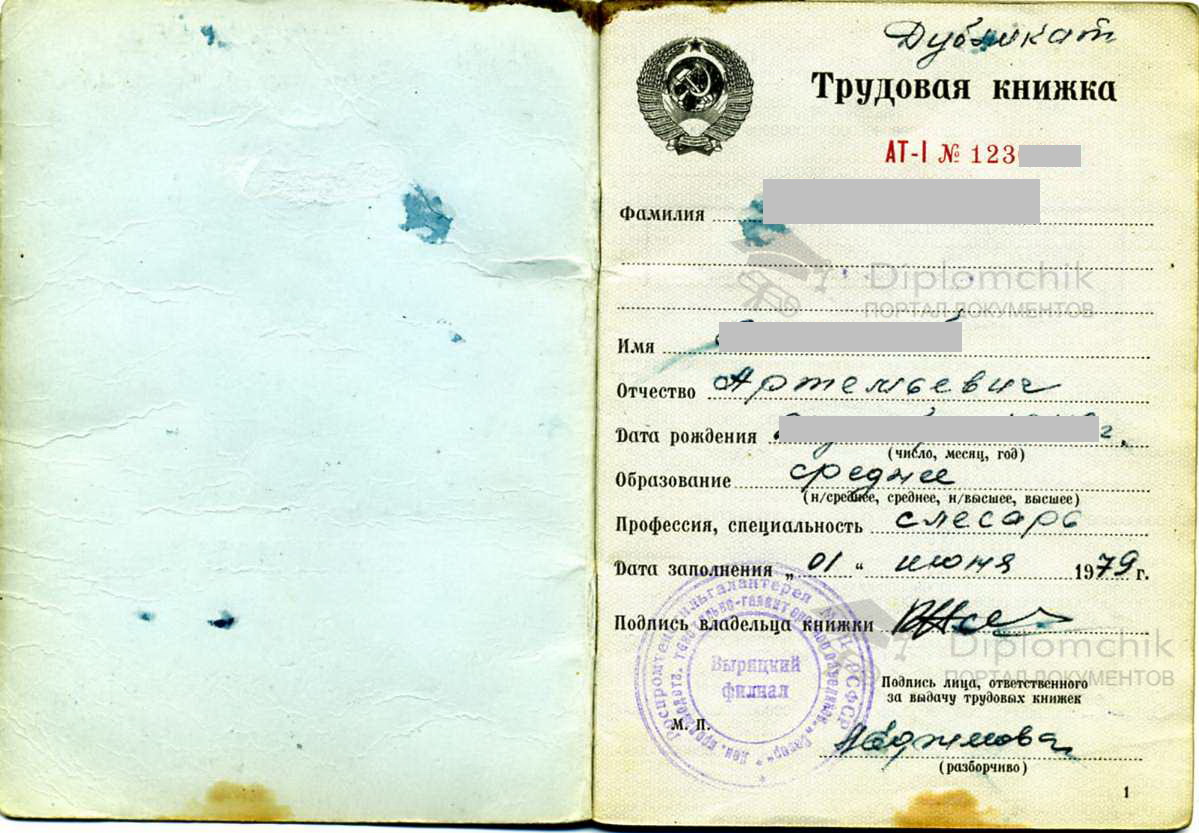 Дубликат
Трудовая книжка
АТ-I № 123
Фамилия
Diplomchik
ПОРТАЛ ДОКУМЕНТОВ
Имя
Отчество Артемьевич
Дата рождения г.
(число, месяц, год)
Образование среднее
(н/среднее, среднее, н/высшее, высшее)
Профессия, специальность слесарь
Дата заполнения „01“ июня 1979 г.
Подпись владельца книжки
Diplomchik
ПОРТАЛ ДОКУМЕНТОВ
Вырицкий
филиал
Подпись лица, ответственного
за выдачу трудовых книжек
М. П.
(разборчиво)
1